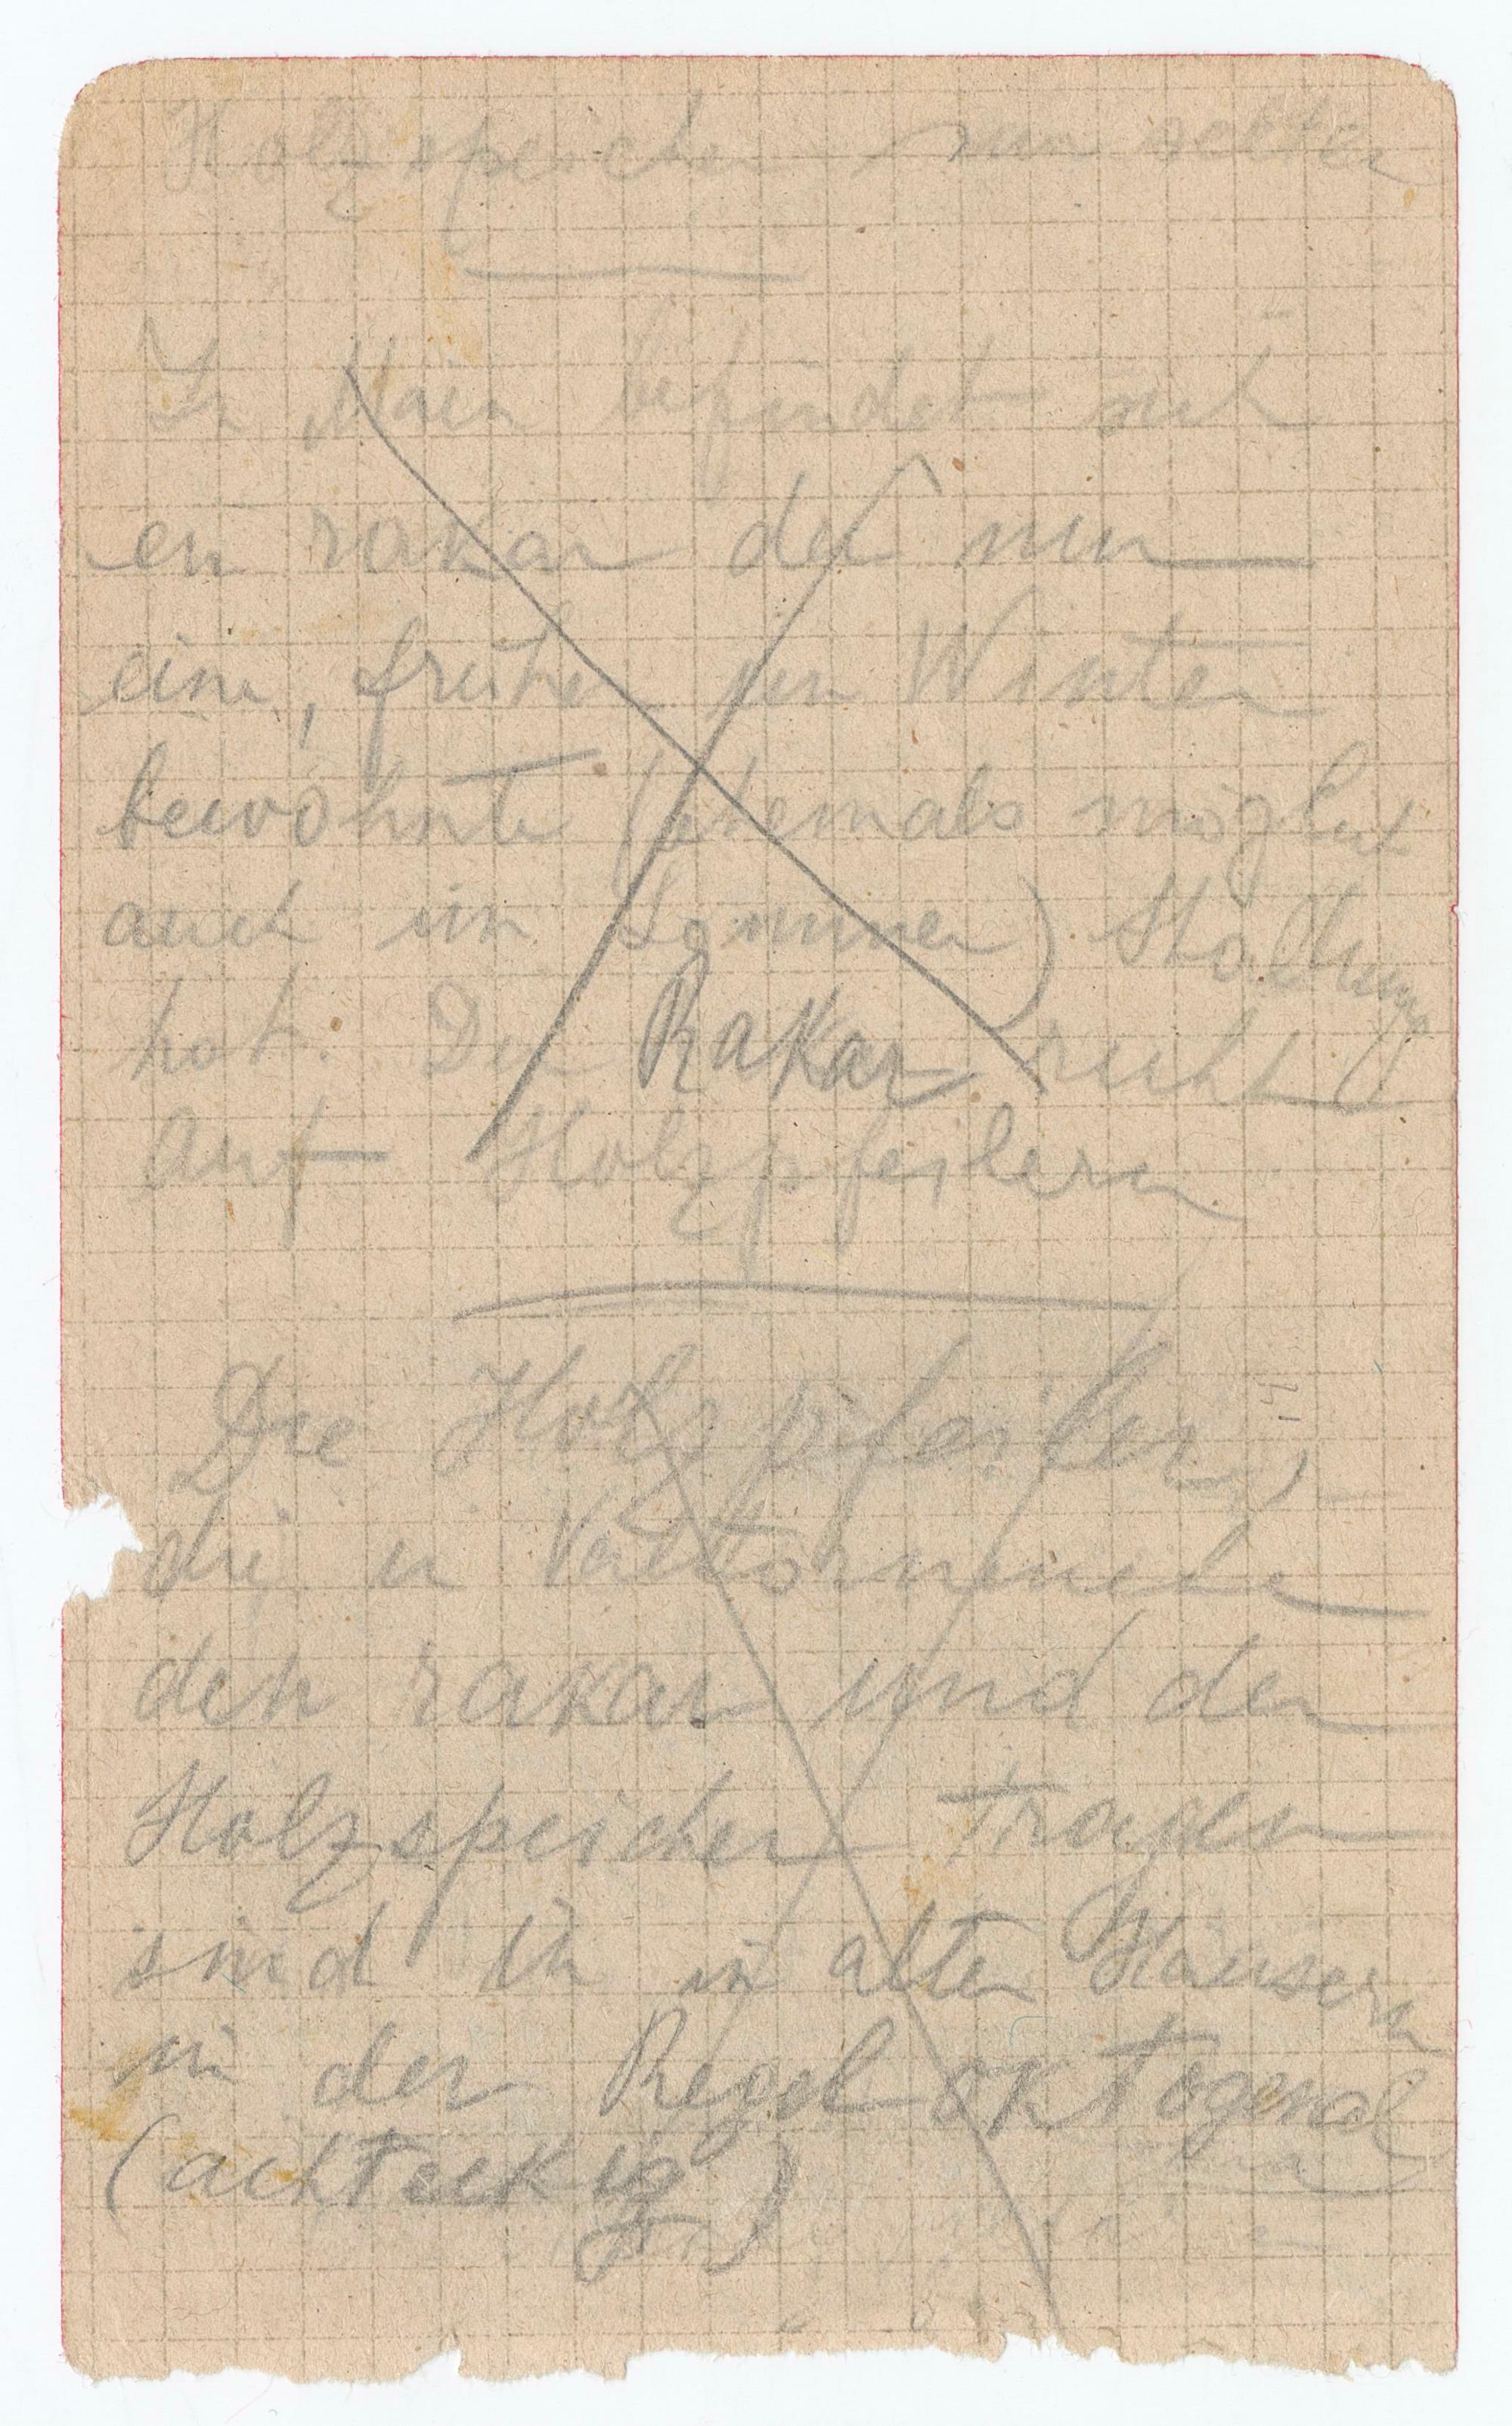 Holzspeicher, nun selten
In Maien befindet sich
ein rakar der nun
eine, früher im Winter
bewohnte (ehemals möglich
auch im Sommer) Stallung
hat. Der Rakar ruht
auf Holzpfeilern
Die Holzpfeiler,
die in
den rakar und den
Holzspeicher tragen
sind in in alten Häusern
in der Regel oktogonal
(achteckig)